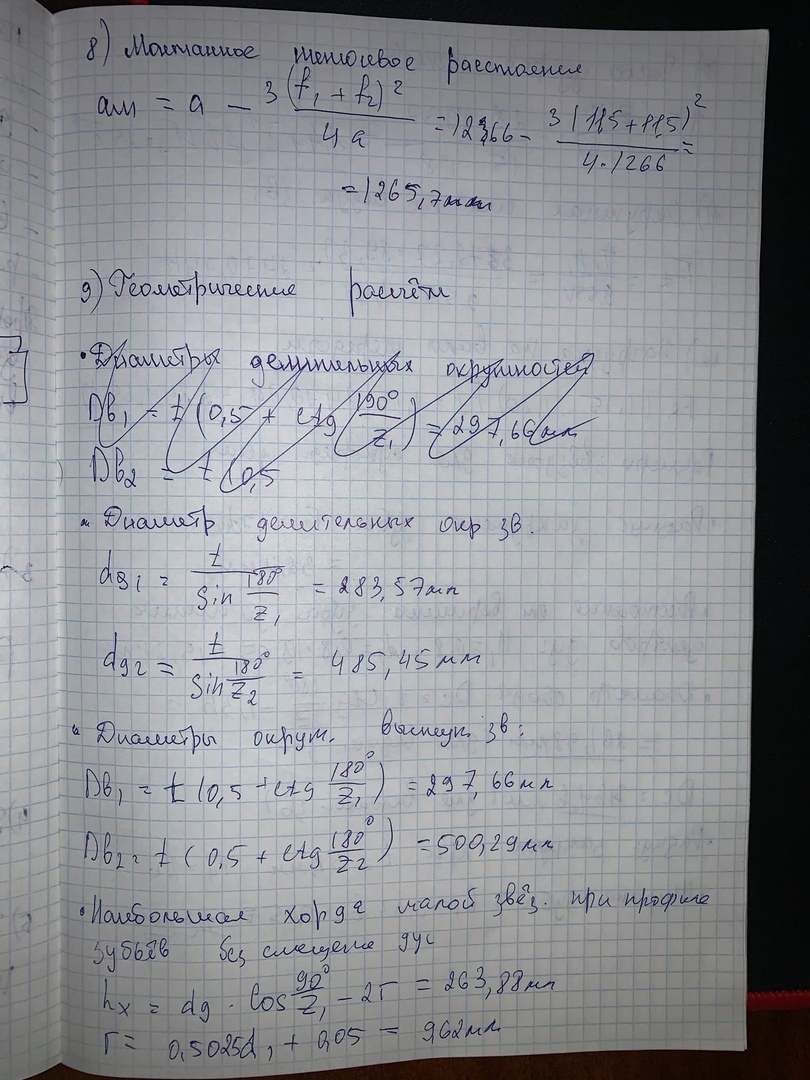 8) Монтажное межосевое расстояние
aм = a - 3(f₁ + f₂)² / 4a = 12366 - 3(11,5+11,5)² / 4·1266 =
= 1265,7мм
9) Геометрические расчёты
• Диаметры делительных окружностей
Dв₁ = t (0,5 + ctg 190°/Z₁) = 297,66мм
Dв₂ = t (0,5
• Диаметр делительных окр зв.
dg₁ = t / Sin 180°/Z₁ = 283,57мм
dg₂ = t / Sin 180°/Z₂ = 485,45мм
• Диаметры окруж. выступ. зв:
Dв₁ = t (0,5 + ctg 180°/Z₁) = 297,66мм
Dв₂ = t (0,5 + ctg 180°/Z₂) = 500,29мм
• Наибольшая хорда малой звёз. при профиле
зубьев без смещения дус
hx = dg · Cos 90°/Z₁ - 2r = 263,88мм
r = 0,5025d₁ + 0,05 = 962мм